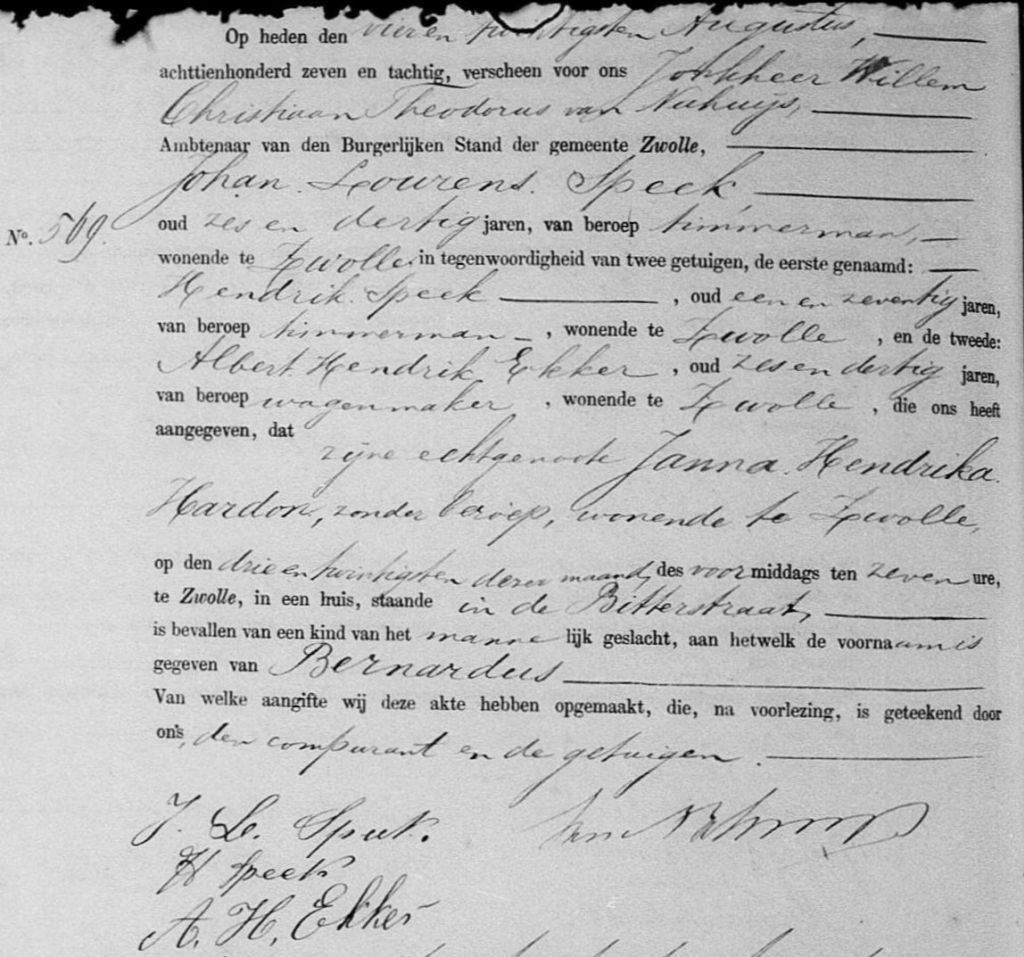 Op heden den vier en twintigsten Augustus,
achttienhonderd zeven en tachtig, verscheen voor ons Jonkheer Willem
Christiaan Theodorus van Nahuijs,
Ambtenaar van den Burgerlijken Stand der gemeente Zwolle,
Johan Lourens Speek
No. 569. oud zes en dertig jaren, van beroep timmerman,
wonende te Zwolle in tegenwoordigheid van twee getuigen, de eerste genaamd:
Hendrik Speek, oud een en zeventig jaren,
van beroep timmerman, wonende te Zwolle, en de tweede:
Albert Hendrik Ekker, oud zes en dertig jaren,
van beroep wagenmaker, wonende te Zwolle, die ons heeft
aangegeven, dat
zijne echtgenoote Janna Hendrika
Hardon, zonder beroep, wonende te Zwolle,
op den drie en twintigsten dezer maand, des voormiddags ten zeven ure,
te Zwolle, in een huis, staande in de Bitterstraat,
is bevallen van een kind van het mannelijk geslacht, aan hetwelk de voornaam is
gegeven van Bernardus
Van welke aangifte wij deze akte hebben opgemaakt, die, na voorlezing, is geteekend door
ons, den comparant en de getuigen.
J. L. Speek. van Nahuijs
H Speek
A. H. Ekker